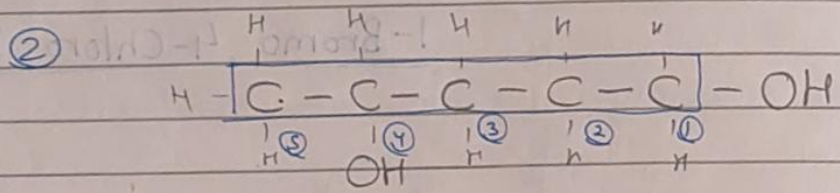 H H H H H
②
H - C - C - C - C - C - OH
⑤ ④ ③ ② ①
H OH H H H